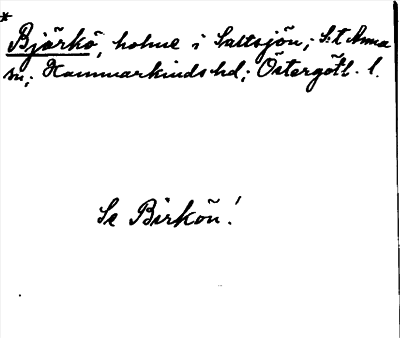 * Björkö, holme i Saltsjön; S:t Anna
sn; Hammarkinds hd; Östergötl. l.
Se Birkön!